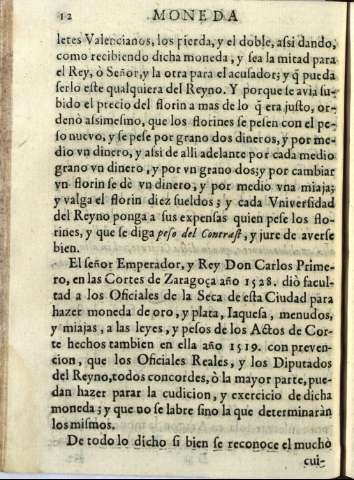 12 MONEDA
letes Valencianos, los pierda, y el doble, assi dando,
como recibiendo dicha moneda, y sea la mitad para
el Rey, ò Señor, y la otra para el acusador; y q̃ pueda
serlo este qualquiera del Reyno. Y porque se avia su-
bido el precio del florin a mas de lo q̃ era justo, or-
denò assimesmo, que los florines se pesen con el pe-
so nuevo, y se pese por grano dos dineros, y por me-
dio vn dinero, y assi de alli adelante por cada medio
grano vn dinero, y por vn grano dos; y por cambiar
vn florin se dè vn dinero, y por medio vna miaja;
y valga el florin diez sueldos; y cada Vniversidad
del Reyno ponga a sus expensas quien pese los flo-
rines, y que se diga peso del Contrast, y jure de averse
bien.
El señor Emperador, y Rey Don Carlos Prime-
ro, en las Cortes de Zaragoça año 1528. diò facul-
tad a los Oficiales de la Seca de esta Ciudad para
hazer moneda de oro, y plata, Iaquesa, menudos,
y miajas, a las leyes, y pesos de los Actos de Cor-
te hechos tambien en ella año 1519. con preven-
cion, que los Oficiales Reales, y los Diputados
del Reyno, todos concordes, ò la mayor parte, pue-
dan hazer parar la cudicion, y exercicio de dicha
moneda; y que no se labre sino la que determinaràn
los mismos.
De todo lo dicho si bien se reconoce el mucho
cui-